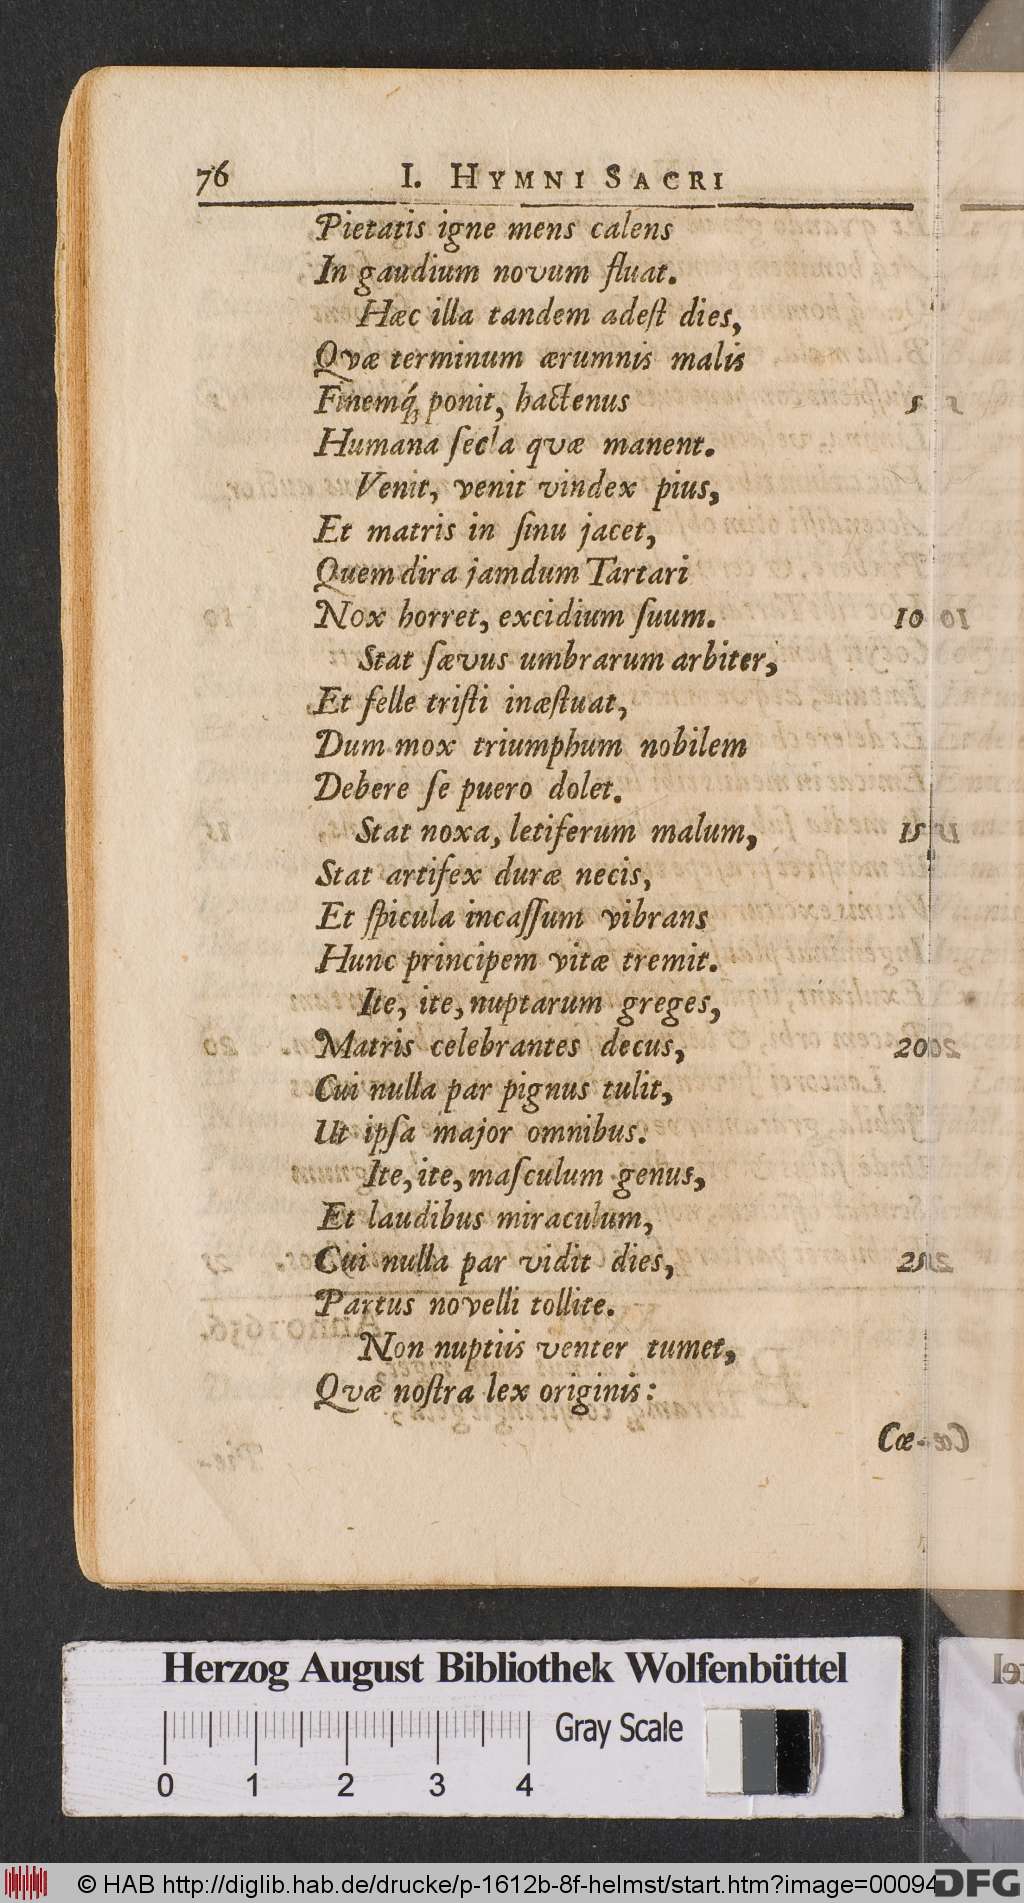 76 I. HYMNI SACRI
Pietatis igne mens calens
In gaudium novum fluat.
Hæc illa tandem adeſt dies,
Qvæ terminum ærumnis malis
Finemq́ꝫ ponit, hactenus 5
Humana ſecla qvæ manent.
Venit, venit vindex pius,
Et matris in ſinu jacet,
Quem dira jamdum Tartari
Nox horret, excidium ſuum. 10
Stat ſævus umbrarum arbiter,
Et felle triſti inæſtuat,
Dum mox triumphum nobilem
Debere ſe puero dolet.
Stat noxa, letiferum malum, 15
Stat artifex duræ necis,
Et ſpicula incaſſum vibrans
Hunc principem vitæ tremit.
Ite, ite, nuptarum greges,
Matris celebrantes decus, 20
Cui nulla par pignus tulit,
Ut ipſa major omnibus.
Ite, ite, maſculum genus,
Et laudibus miraculum,
Cui nulla par vidit dies, 25
Partus novelli tollite.
Non nuptiis venter tumet,
Qvæ noſtra lex originis:
Cœ-
Herzog August Bibliothek Wolfenbüttel
Gray Scale
0 1 2 3 4
© HAB http://diglib.hab.de/drucke/p-1612b-8f-helmst/start.htm?image=00094
DFG